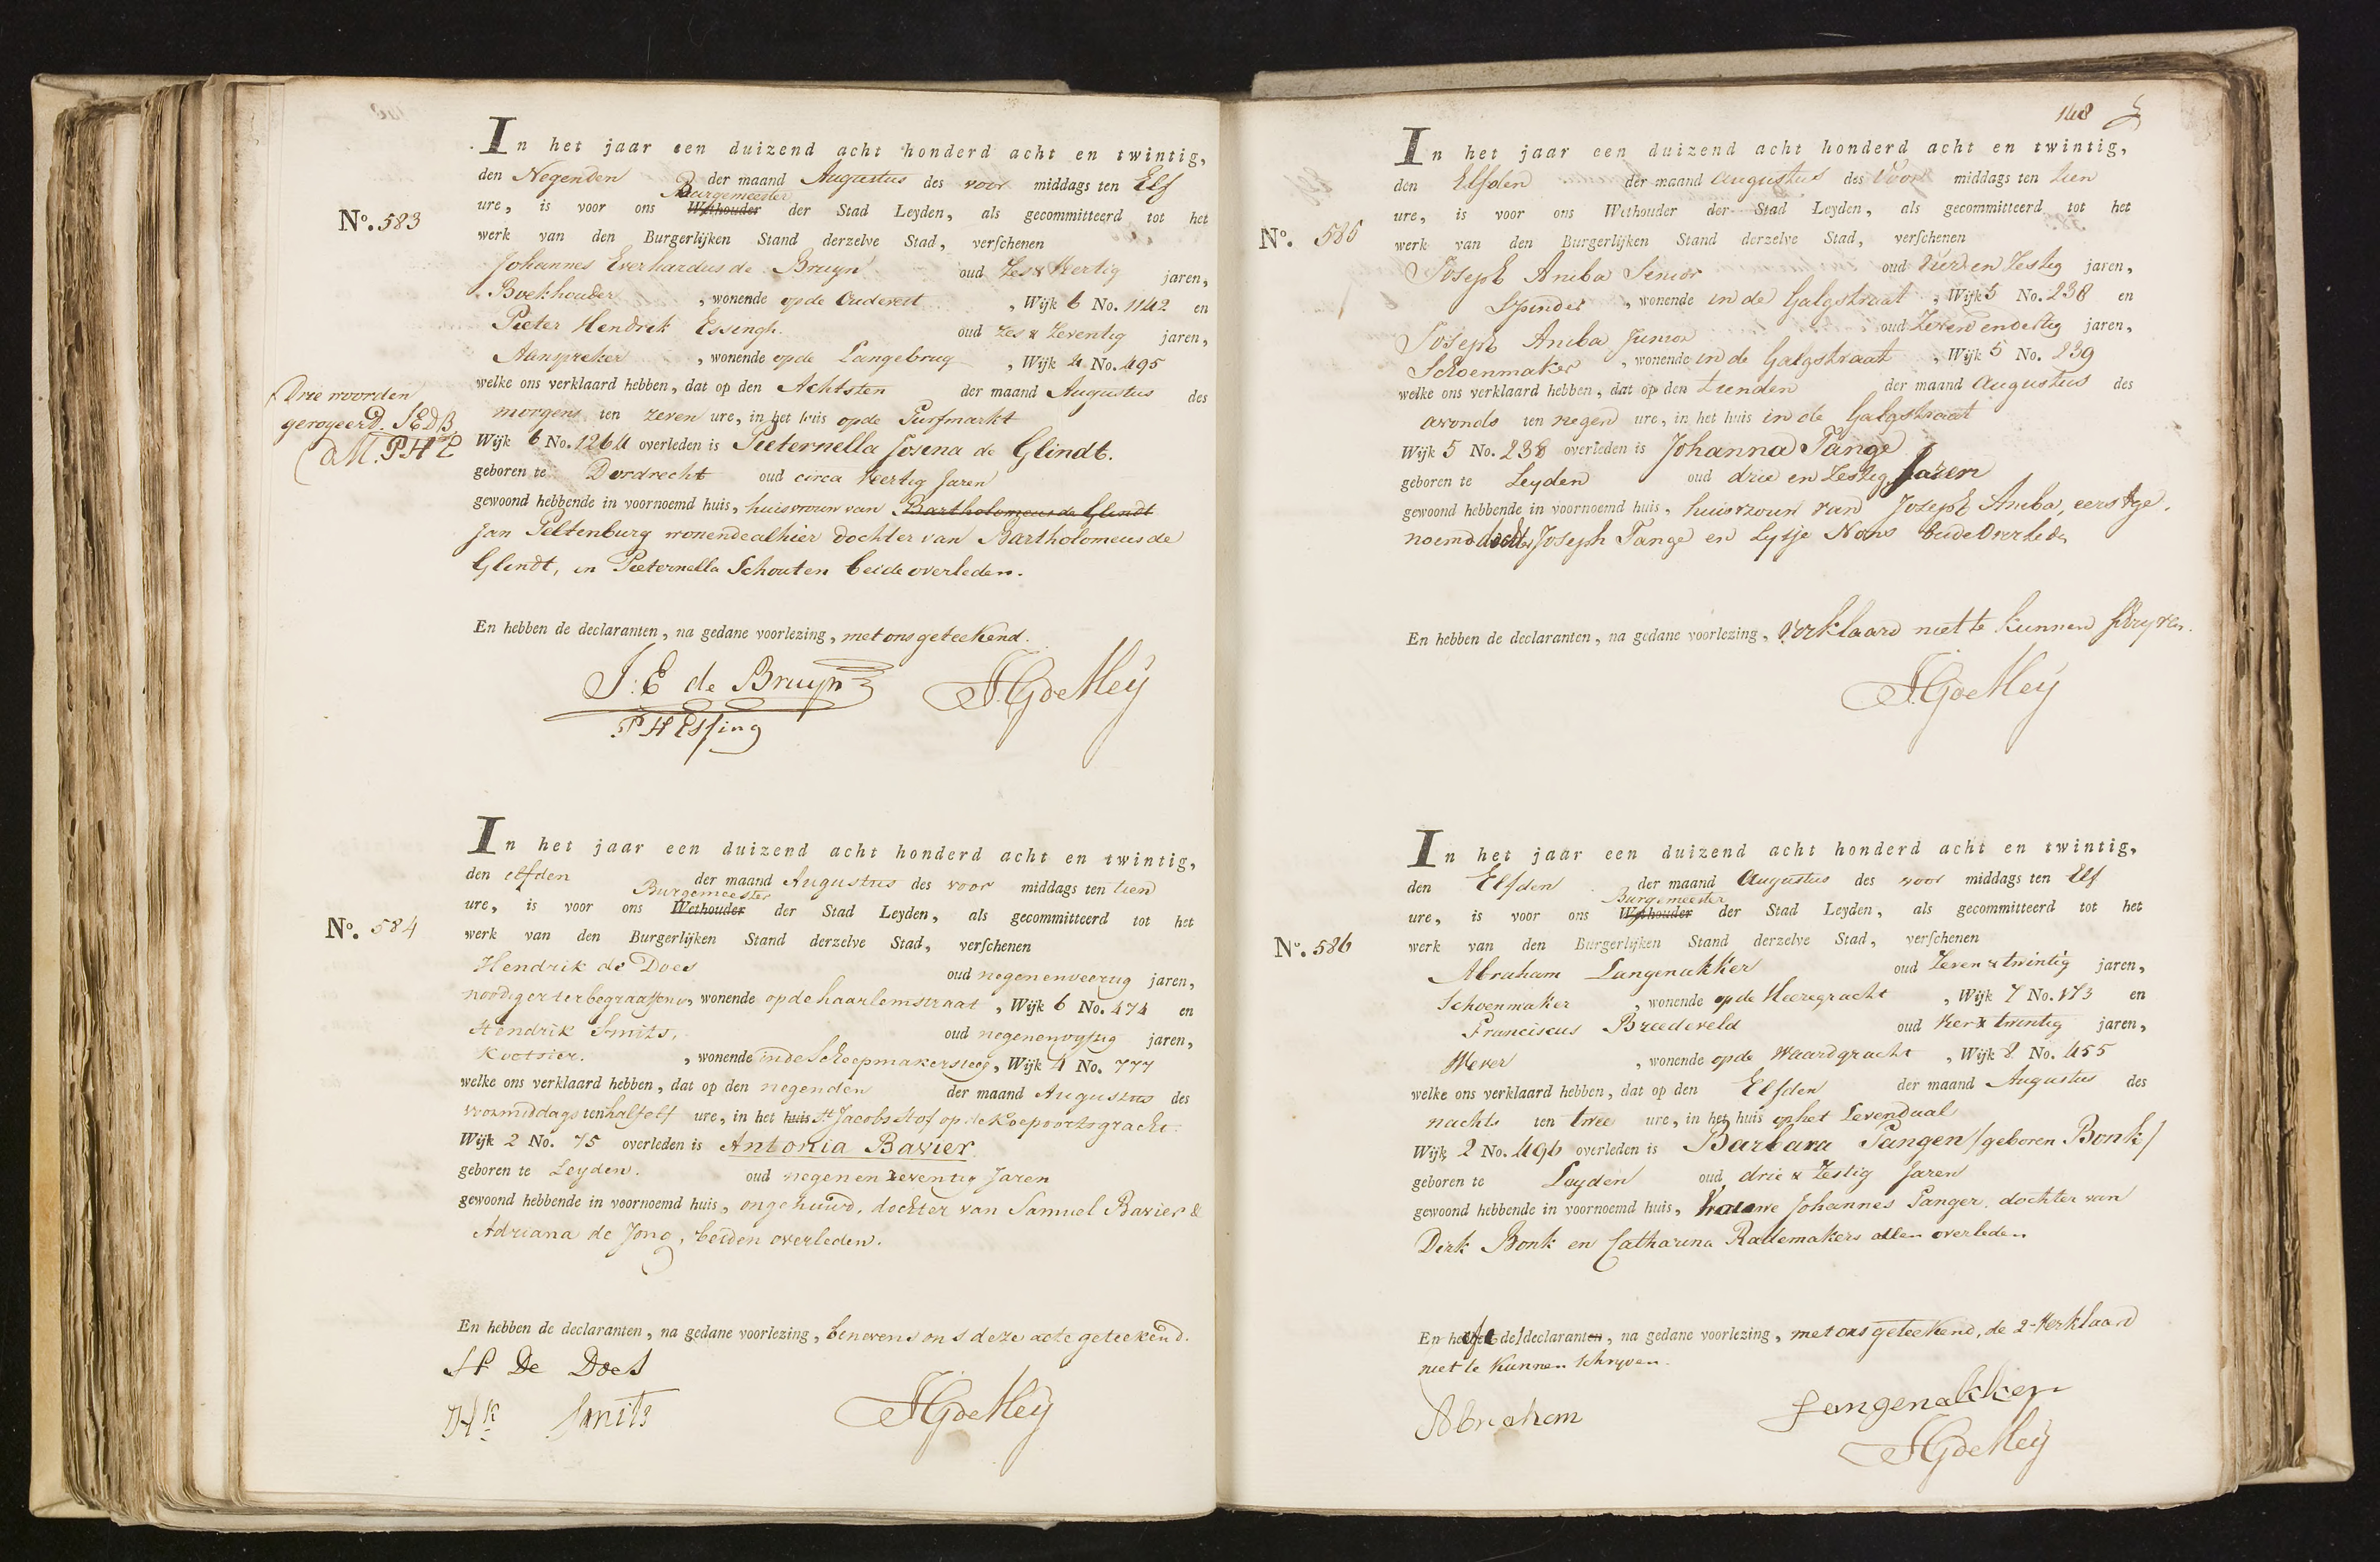 In het jaar een duizend acht honderd acht en twintig,
den Negenden der maand Augustus des voor middags ten Elf
Burgemeester
ure, is voor ons Wethouder der Stad Leyden, als gecommitteerd tot het
No. 583
werk van den Burgerlijken Stand derzelve Stad, verschenen
Johannes Everhardus de Bruyn oud Zes & Veertig jaren,
Boekhouder, wonende op de Oudevest, Wijk 6 No. 1142 en
Pieter Hendrik Essingh oud Zes & Zeventig jaren,
Aanspreker, wonende op de Langebrug, Wijk 4 No. 495
welke ons verklaard hebben, dat op den Achtsten der maand Augustus des
Drie woorden
geroyeerd. JEDB
PHE
morgens ten zeven ure, in het huis op de Turfmarkt
Wijk 6 No. 1264 overleden is Pieternella Josina de Glindt.
geboren te Dordrecht oud circa Veertig Jaren
gewoond hebbende in voornoemd huis, huisvrouw van Bartholomeus de Glindt
Jan Peltenburg wonende alhier dochter van Bartholomeus de
Glindt, en Pieternella Schouten beide overleden.
En hebben de declaranten, na gedane voorlezing, met ons geteekend.
J: E de Bruyn
P H Essing
In het jaar een duizend acht honderd acht en twintig,
den elfden der maand Augustus des voor middags ten tiend
Burgemeester
ure, is voor ons Wethouder der Stad Leyden, als gecommitteerd tot het
No. 584
werk van den Burgerlijken Stand derzelve Stad, verschenen
Hendrik de Does oud negenenveertig jaren,
noodiger ter begraaffenis, wonende op de haarlemstraat, Wijk 6 No. 474 en
Hendrik Smits, oud negenenvyftig jaren,
Koetsier., wonende in de Scheepmakersteeg, Wijk 4 No. 777
welke ons verklaard hebben, dat op den negenden der maand Augustus des
voormiddags ten half elf ure, in het huis St Jacobs Hof op de Koepoortsgracht
Wijk 2 No. 75 overleden is Antonia Bavier
geboren te Leyden. oud negenenzeventig Jaren
gewoond hebbende in voornoemd huis, ongehuwd, dochter van Samuel Bavier &
Adriana de Jong, beiden overleden.
En hebben de declaranten, na gedane voorlezing, benevens ons deze acte geteekend.
H De Does
Hk Smits
148
In het jaar een duizend acht honderd acht en twintig,
den Elfden der maand Augustus des Voor middags ten tien
ure, is voor ons Wethouder der Stad Leyden, als gecommitteerd tot het
No. 585
werk van den Burgerlijken Stand derzelve Stad, verschenen
Joseph Aniba Senior oud vier en Zestig jaren,
Spinder, wonende in de Galgstraat, Wijk 5 No. 238 en
Joseph Aniba Junior oud Zeven en dertig jaren,
Schoenmaker, wonende in de Galgstraat, Wijk 5 No. 239
welke ons verklaard hebben, dat op den tienden der maand Augustus des
avonds ten negen ure, in het huis in de Galgstraat
Wijk 5 No. 238 overleden is Johanna Tange
geboren te Leyden oud drie en Zestig Jaren
gewoond hebbende in voornoemd huis, huisvrouw van Joseph Aniba, eerstge-
noemd dochter Joseph Tange en Lysje Nons beide Overleden
En hebben de declaranten, na gedane voorlezing, verklaard niet te kunnen schryven.
In het jaar een duizend acht honderd acht en twintig,
den Elfden der maand Augustus des voor middags ten Elf
Burgemeester
ure, is voor ons Wethouder der Stad Leyden, als gecommitteerd tot het
No. 586
werk van den Burgerlijken Stand derzelve Stad, verschenen
Abraham Langenakker oud Zeven & twintig jaren,
Schoenmaker, wonende op de Heeregracht, Wijk 7 No. 173 en
Franciscus Breedeveld oud Vier & twintig jaren,
Wever, wonende op de Waardgracht, Wijk 8 No. 455
welke ons verklaard hebben, dat op den Elfden der maand Augustus des
nachts ten twee ure, in het huis op het Levendaal
Wijk 2 No. 496 overleden is Barbara Pangen /geboren Bonk/
geboren te Leyden oud drie & Zestig Jaren
gewoond hebbende in voornoemd huis, Johannes Panger dochter van
Dirk Bonk en Catharina Rademakers allen overleden
En heeft de 1 declaranten, na gedane voorlezing, met ons geteekend, de 2e Verklaard
niet te kunnen schryven.
Abraham Langenakker